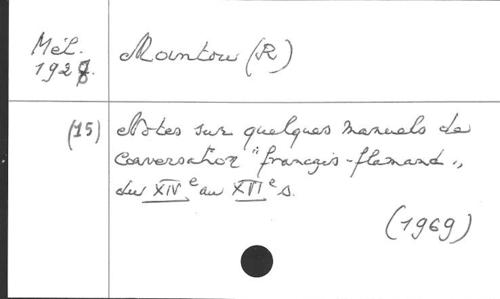 Mél.
1927.
Mantou (R)
(15)
Notes sur quelques manuels de
conversation "français-flamand"
du XIVe au XVIe s.
(1969)